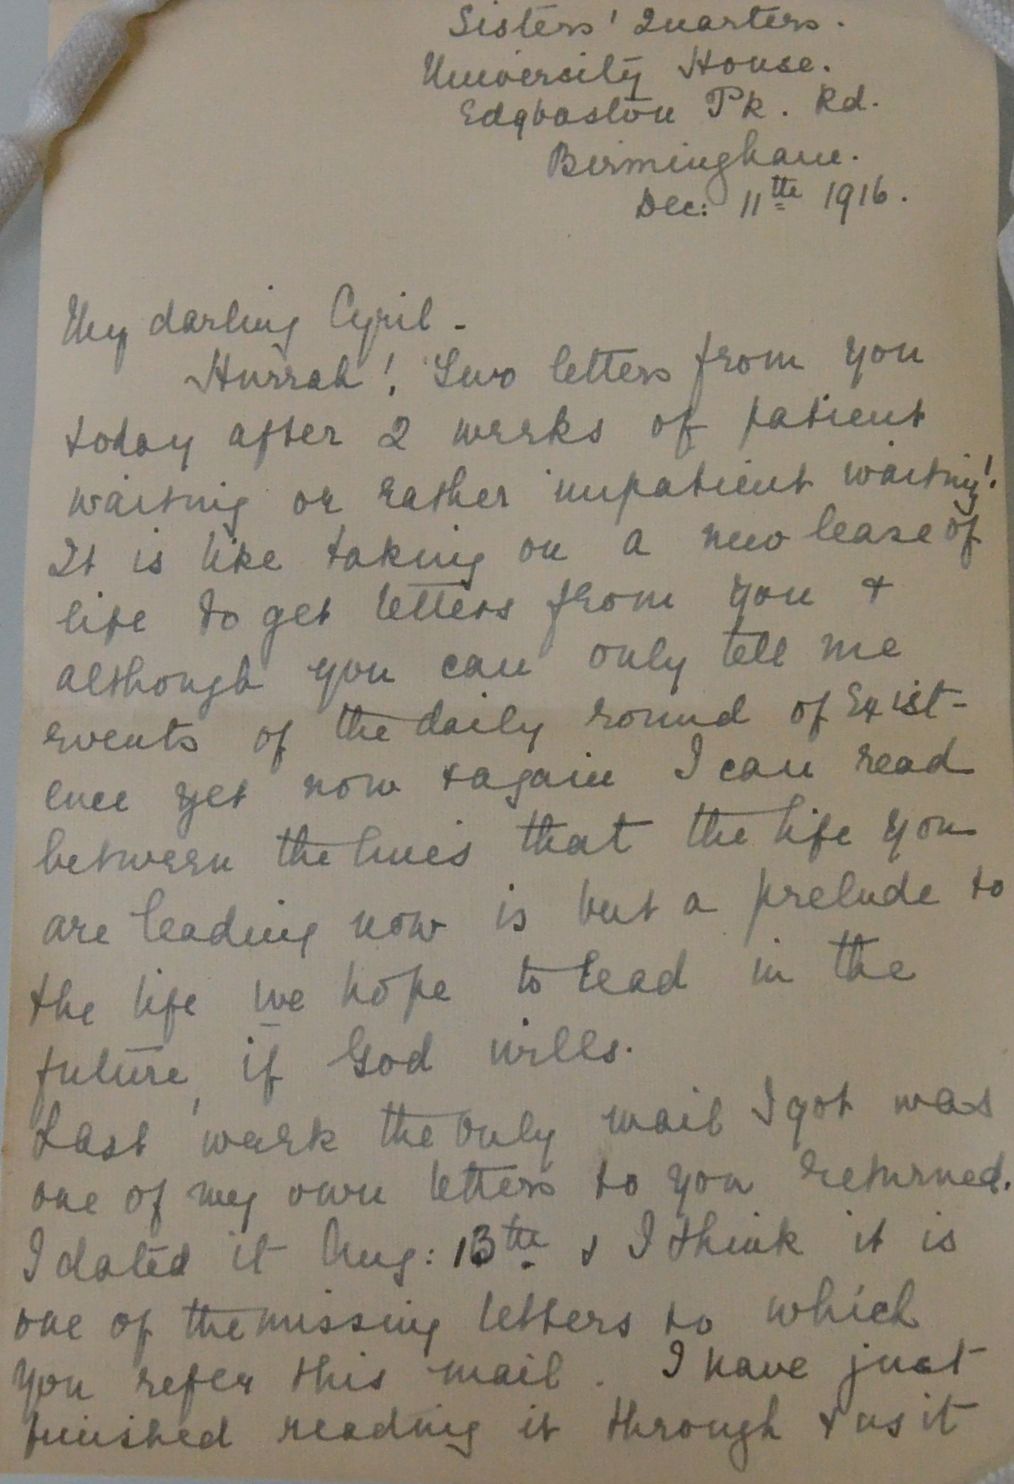 Sisters' Quarters.
University House.
Edgbaston Pk. Rd.
Birmingham.
Dec: 11th 1916.
My darling Cyril -
Hurrah! Two letters from you
today after 2 weeks of patient
waiting or rather impatient waiting!
It is like taking on a new lease of
life to get letters from you &
although you can only tell me
events of the daily round of exist-
ence yet now & again I can read
between the lines that the life you
are leading now is but a prelude to
the life we hope to lead in the
future, if God wills.
Last week the only mail I got was
one of my own letters to you returned.
I dated it Aug: 13th & I think it is
one of the missing letters to which
you refer this mail. I have just
finished reading it through & as it